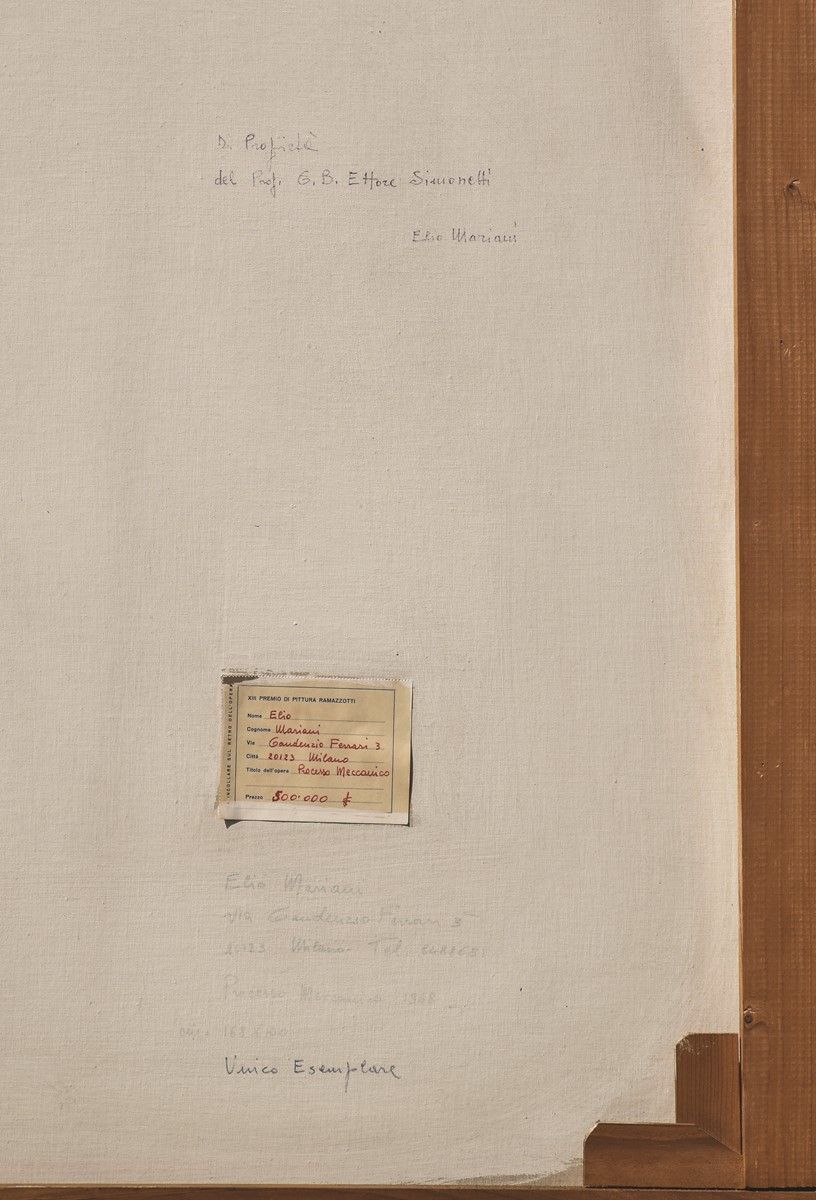 Di Proprietà
del Prof. G. B. Ettore Simonetti
Elio Mariani
INCOLLARE SUL RETRO DELL'OPERA
XIII PREMIO DI PITTURA RAMAZZOTTI
Nome Elio
Cognome Mariani
Via Gaudenzio Ferrari 3
Città 20123 Milano
Titolo dell'opera Processo Meccanico
Prezzo 500.000 £
Elio Mariani
Via Gaudenzio Ferrari 3
20123 Milano Tel.
Processo Meccanico 1968
Unico Esemplare